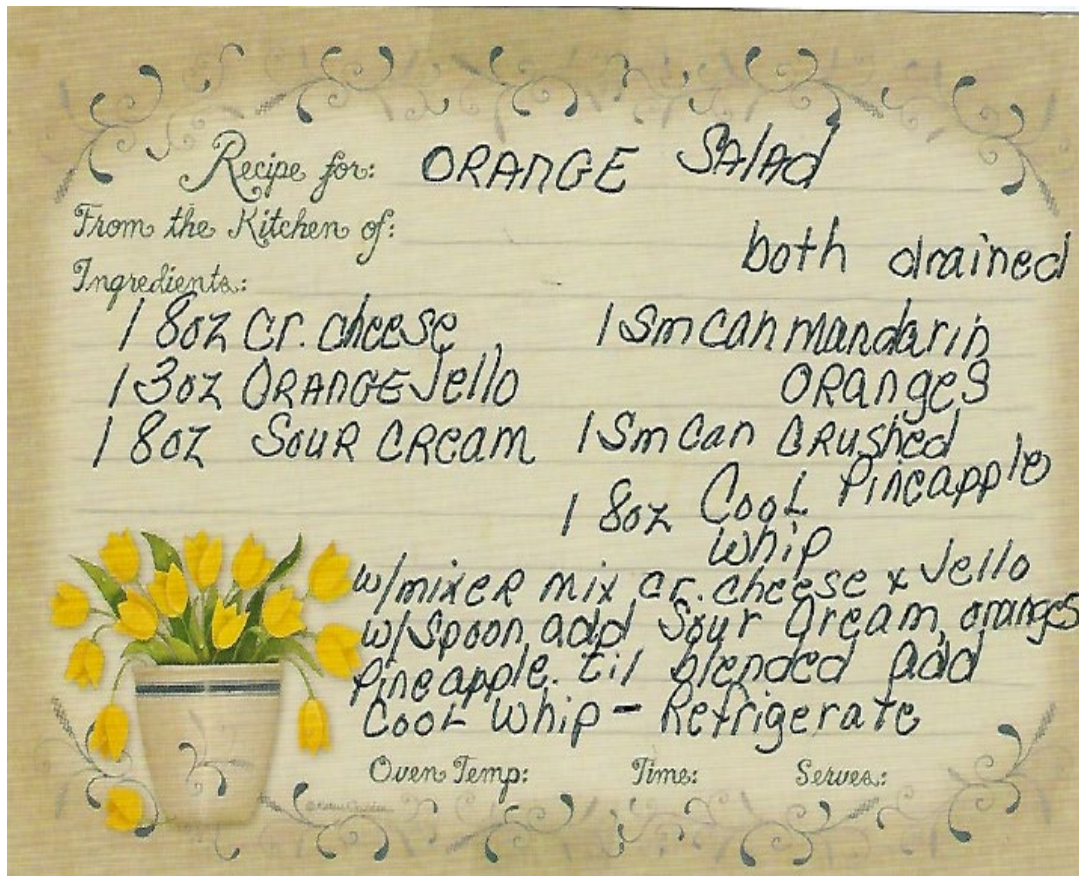 Recipe for: ORANGE SALAD
From the Kitchen of:
both drained
Ingredients:
1 8oz cr. cheese
1 3oz ORANGE Jello
1 8oz SOUR CREAM
1 Sm can mandarin
ORanges
1 Sm can CRushed
Pineapple
1 8oz Cool
whip
w/mixeR mix cr. cheese & Jello
w/spoon add Sour Cream, oranges
pineapple. til blended add
Cool whip - Refrigerate
Oven Temp: Time: Serves: